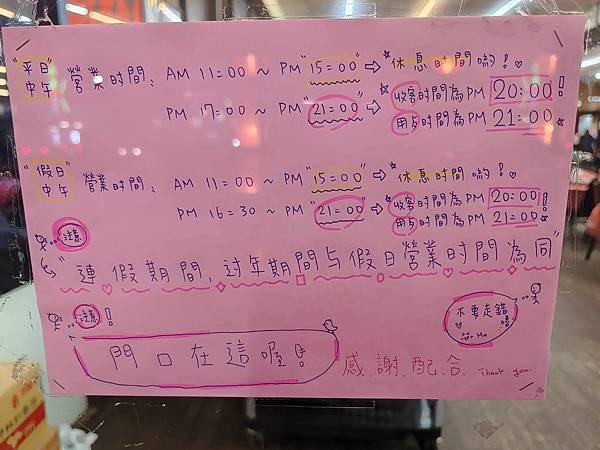 "平日" 營業時間: AM 11:00 ~ PM "15:00" ⇨ *休息時間喲!♡
中午
PM 17:00 ~ PM "21:00" ⇨ *收客時間為PM 20:00!
*用餐時間為PM 21:00*
"假日" 營業時間: AM 11:00 ~ PM "15:00" ⇨ *休息時間喲!
中午
PM 16:30 ~ PM "21:00" ⇨ *收客時間為PM 20:00!
*用餐時間為PM 21:00*
注意
"連假期間,过年期間与假日營業時間為同"
注意!
不要走錯
嘿
哈.Ha
門口在這喔!
感.謝.配.合. Thank you.